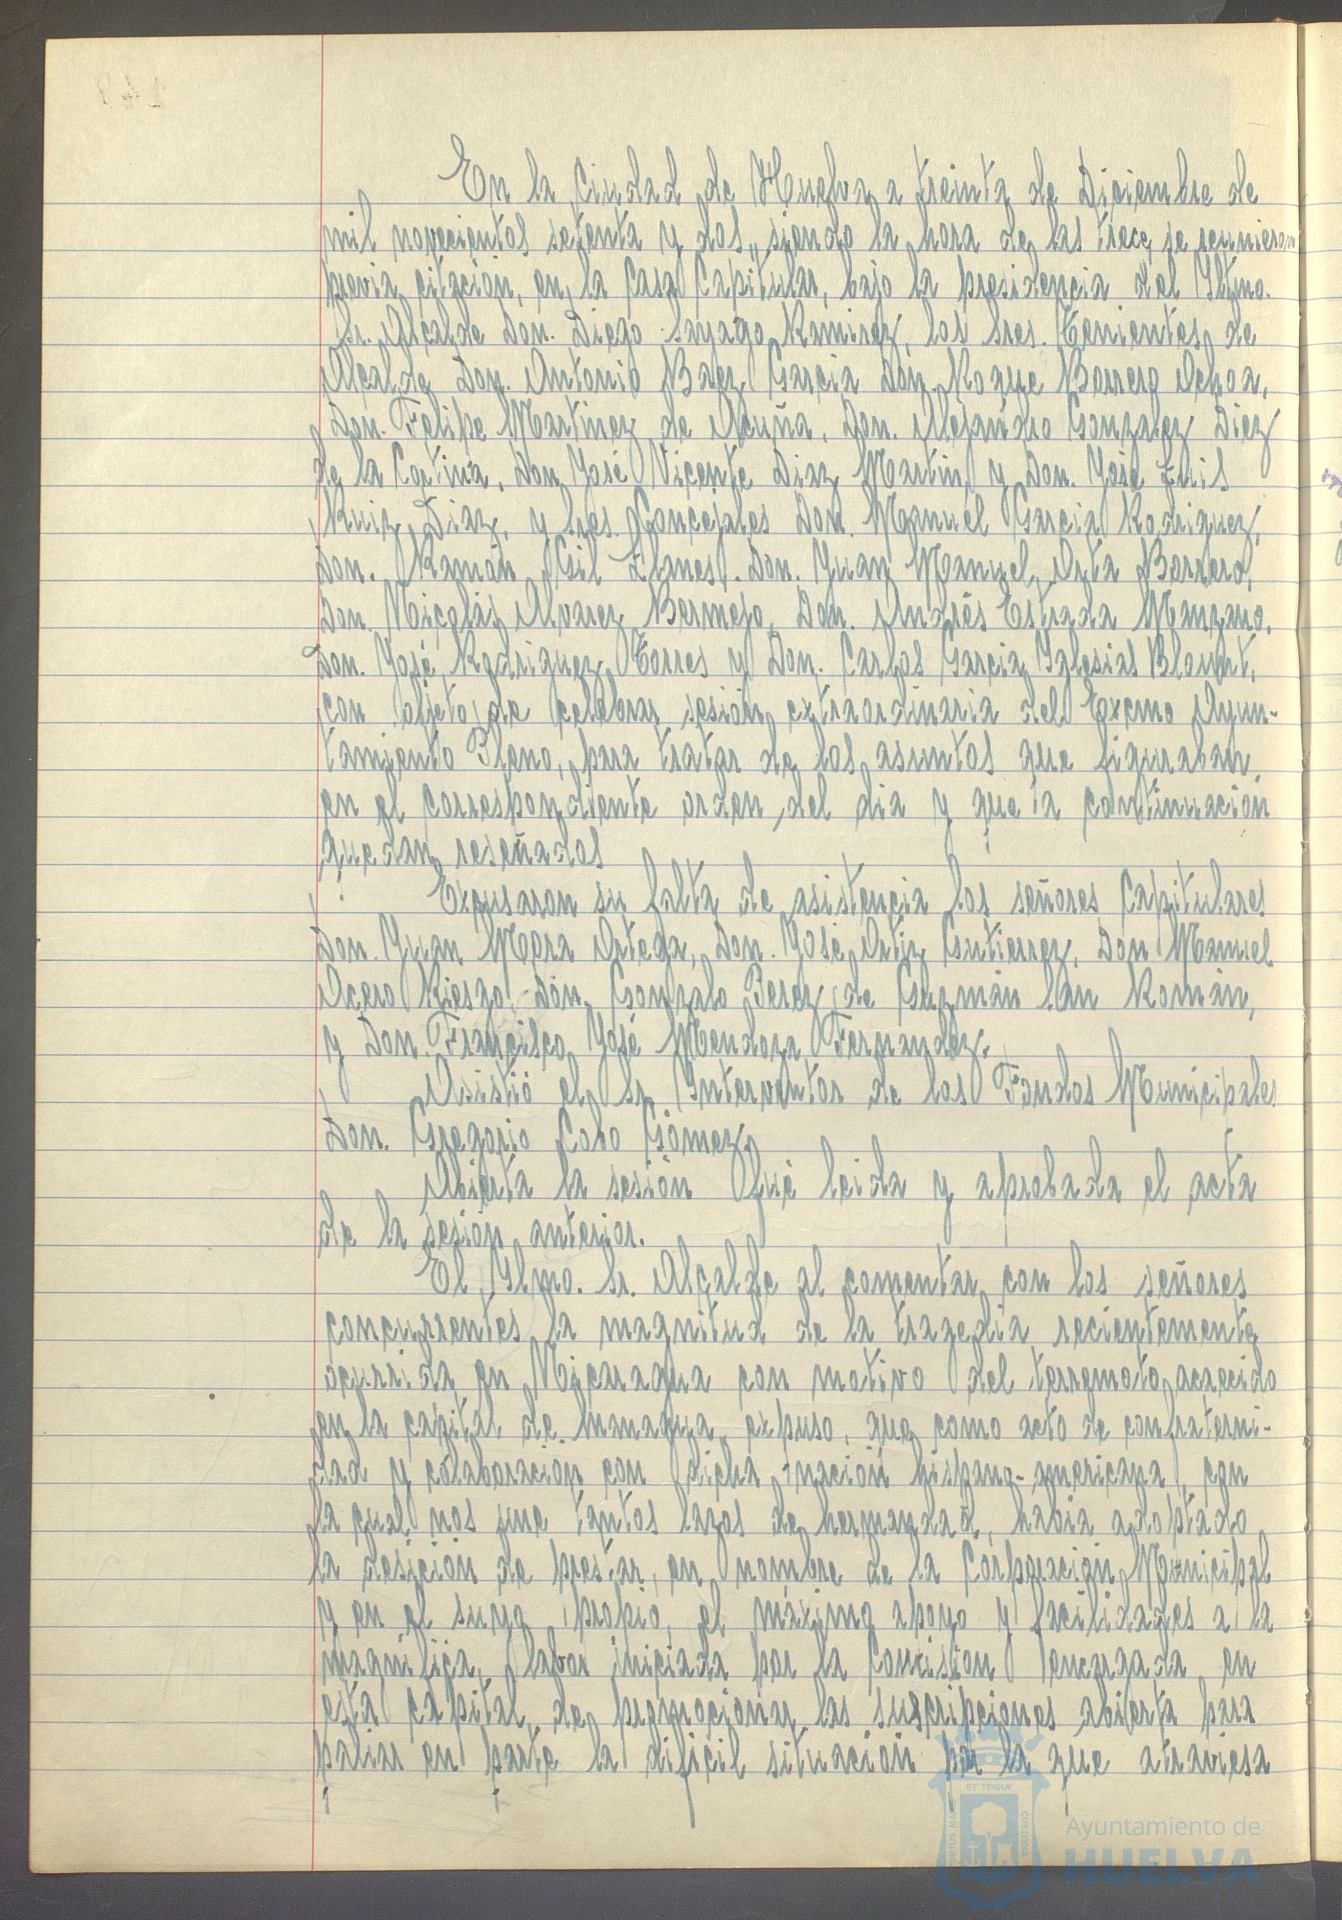 En la Ciudad de Huelva a treinta de Diciembre de
mil novecientos setenta y dos, siendo la hora de las trece, se reunieron
previa citación, en la Casa Capitular, bajo la presidencia del Iltmo.
Sr. Alcalde Don. Diego Sayago Ramirez, los Sres. Tenientes de
Alcalde Don. Antonio Baez Garcia Don. Roque Borrero Ochoa,
Don. Felipe Martinez de Acuña, Don. Alejandro Gonzalez Diez
de la Cortina, Don José Vicente Diaz Martin y Don. José Luis
Ruiz Diaz, y Sres. Concejales Don. Manuel Garcia Rodriguez,
Don. Ramón Gil Llanes. Don. Juan Manuel Orta Borrero,
Don. Nicolás Alvarez Bermejo, Don. Andrés Estrada Manzano,
Don. José Rodriguez Torres y Don. Carlos Garcia Iglesias Blount,
con objeto de celebrar sesión extraordinaria del Excmo Ayun-
tamiento Pleno, para tratar de los asuntos que figuraban
en el correspondiente orden del dia y que a continuación
quedan reseñados
Excusaron su falta de asistencia los señores Capitulares
Don. Juan Mora Ortega, Don. José Ortiz Gutierrez, Don Manuel
Acero Riesgo, Don. Gonzalo Perez de Guzmán San Román,
y Don. Francisco José Mendoza Fernandez.
Asistió el Sr. Interventor de los Fondos Municipales
Don. Gregorio Cobo Gómez.
Abierta la sesión fué leida y aprobada el acta
de la sesión anterior.
El Ilmo. Sr. Alcalde al comentar con los señores
concurrentes la magnitud de la tragedia recientemente
ocurrida en Nicaragua con motivo del terremoto acaecido
en la capital de Managua, expuso, que como acto de confraterni-
dad y colaboración con dicha nación hispano-americana, con
la cual nos une tantos lazos de hermandad, habia adoptado
la desición de prestar, en nombre de la Corporación Municipal
y en el suyo propio, el máximo apoyo y facilidades a la
magnifica labor iniciada por la Comision encargada en
esta capital de promocionar las suscripciones abierta para
paliar en parte la dificil situación por la que atraviesa
Ayuntamiento de
HUELVA